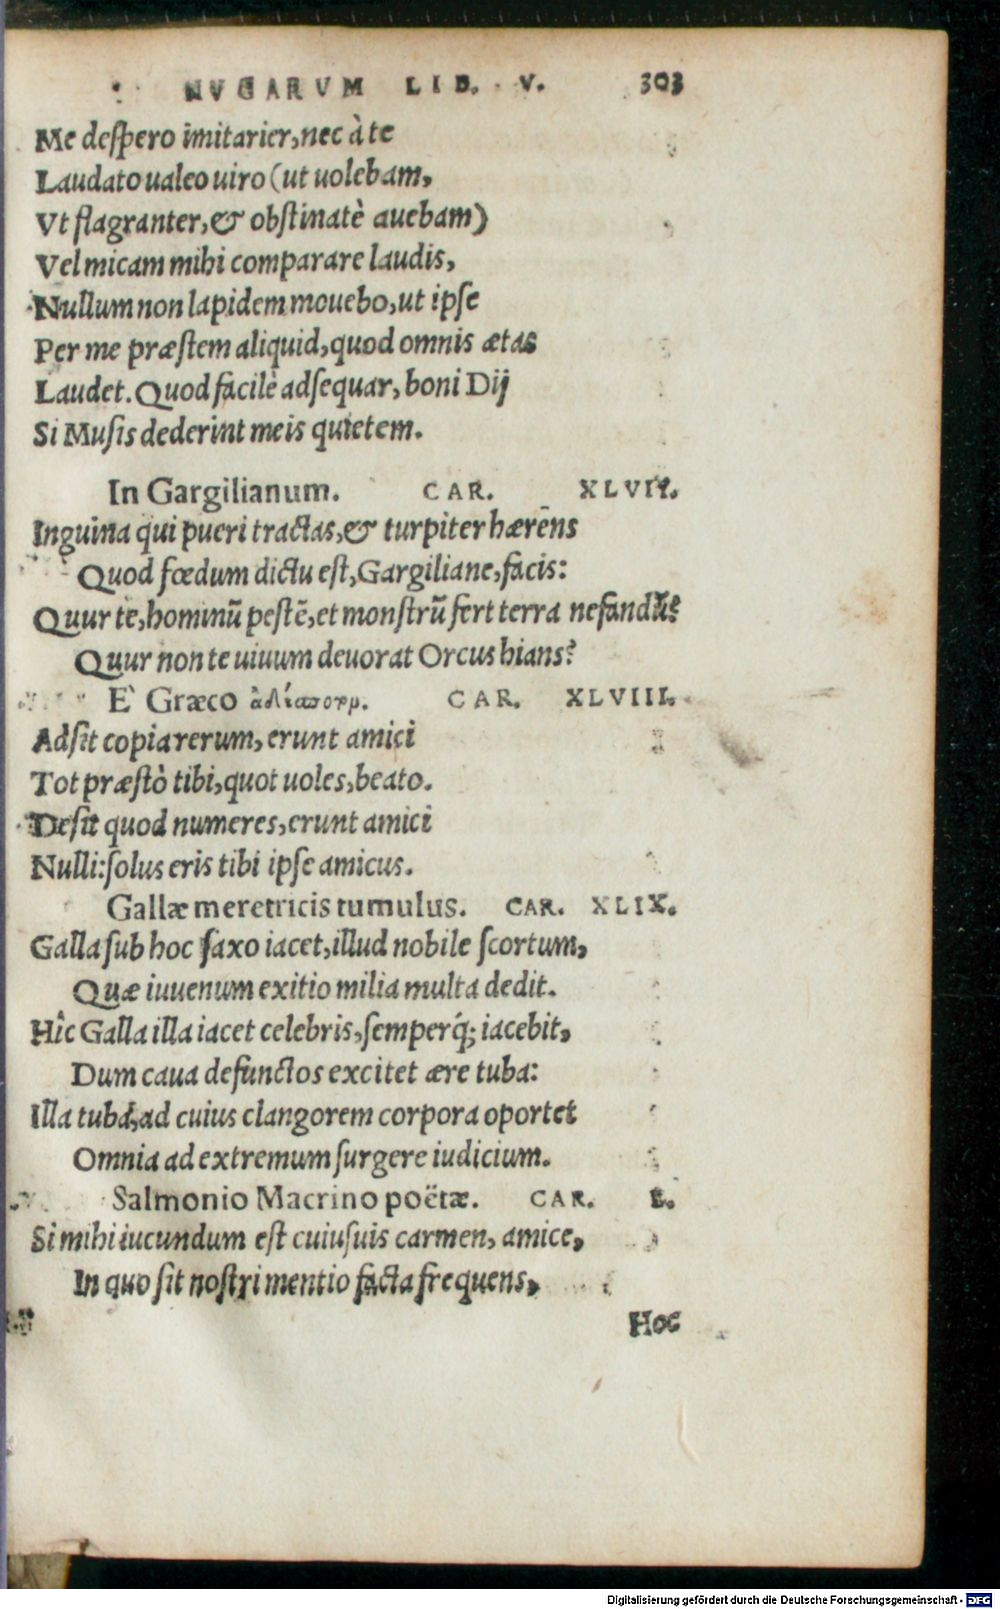 NVGARVM LIB. V. 303
Me despero imitarier, nec à te
Laudato ualeo uiro (ut uolebam,
Vt flagranter, & obstinatè auebam)
Vel micam mihi comparare laudis,
Nullum non lapidem mouebo, ut ipse
Per me præstem aliquid, quod omnis ætas
Laudet. Quod facilè adsequar, boni Dij
Si Musis dederint meis quietem.
In Gargilianum. CAR. XLVII.
Inguina qui pueri tractas, & turpiter hærēns
Quod fœdum dictu est, Gargiliane, facis:
Quur te, hominū pestē, et monstrū fert terra nefandū?
Quur non te uiuum deuorat Orcus hians?
E Græco CAR. XLVIII.
Adsit copia rerum, erunt amici
Tot præstò tibi, quot uoles, beato.
Desit quod numeres, erunt amici
Nulli: solus eris tibi ipse amicus.
Gallæ meretricis tumulus. CAR. XLIX.
Galla sub hoc saxo iacet, illud nobile scortum,
Quæ iuuenum exitio milia multa dedit.
Hîc Galla illa iacet celebris, semperq́; iacebit,
Dum caua defunctos excitet ære tuba:
Illa tuba, ad cuius clangorem corpora oportet
Omnia ad extremum surgere iudicium.
Salmonio Macrino poëtæ. CAR. L.
Si mihi iucundum est cuiusuis carmen, amice,
In quo sit nostri mentio facta frequens,
Hoc
Digitalisierung gefördert durch die Deutsche Forschungsgemeinschaft - DFG